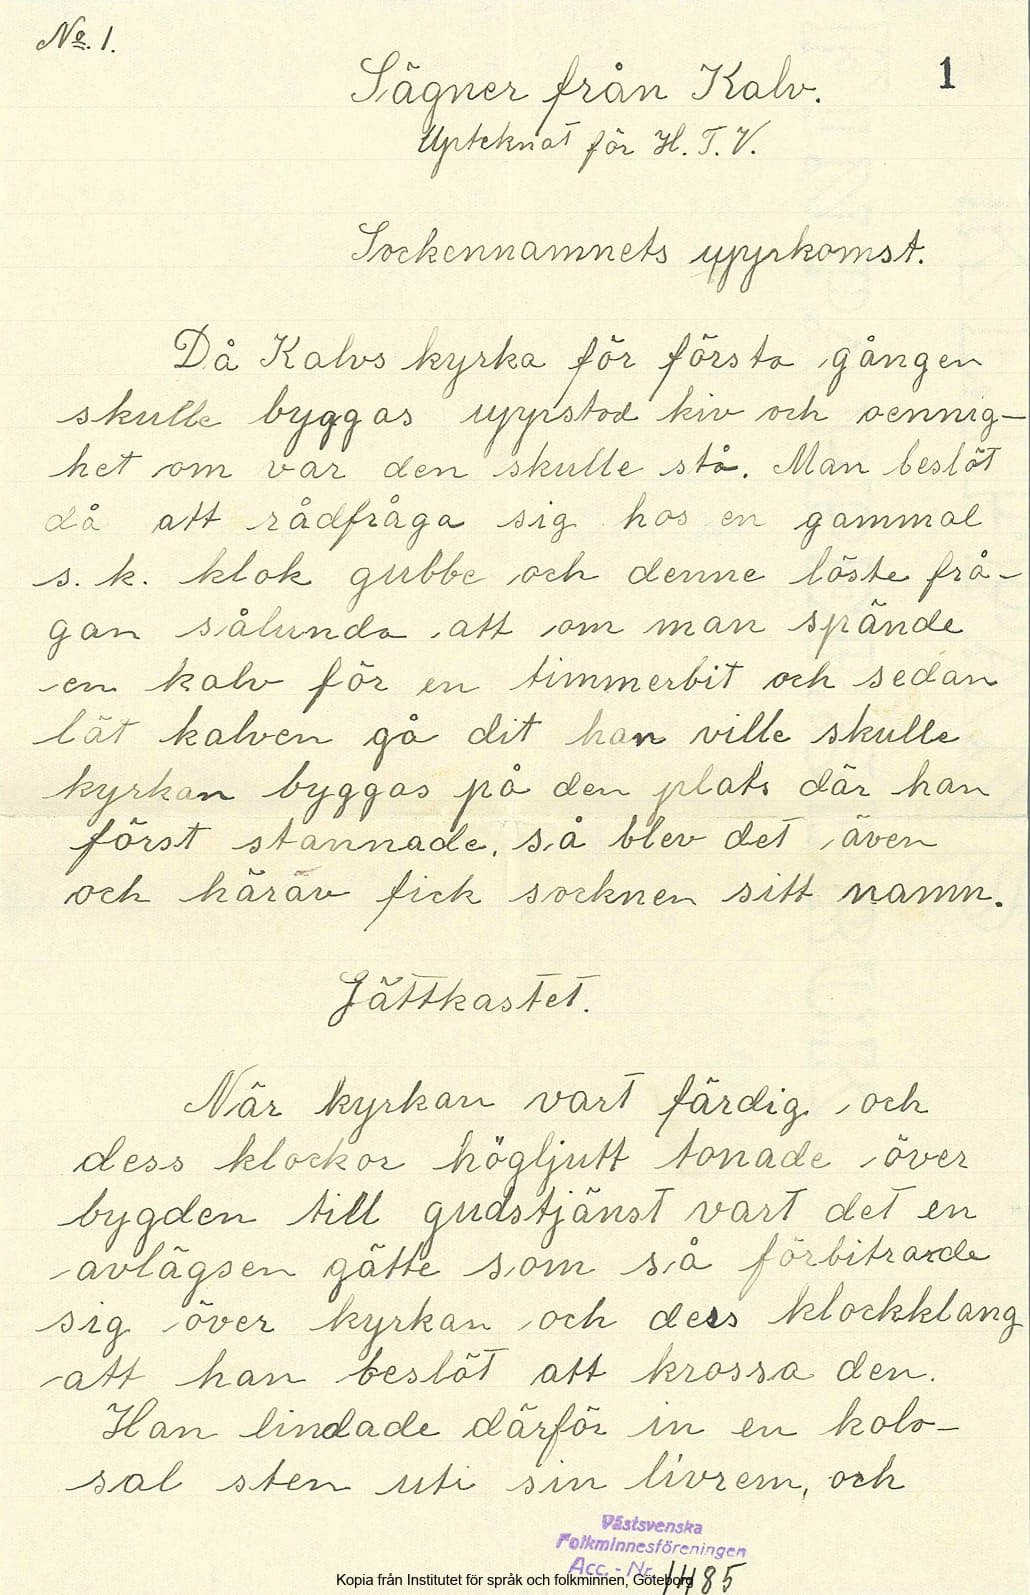 No. 1.
1
Sägner från Kalv.
Upteknat för H. T. V.
Sockennamnets uppkomst.
Då Kalvs kyrka för första gången
skulle byggas uppstod kiv och oennig-
het om var den skulle stå. Man beslöt
då att rådfråga sig hos en gammal
s. k. klok gubbe och denne löste frå-
gan sålunda att om man spände
en kalv för en timmerbit och sedan
lät kalven gå dit han ville skulle
kyrkan byggas på den plats där han
först stannade, så blev det även
och härav fick socknen sitt namn.
Jättkastet.
När kyrkan vart färdig och
dess klockor högljutt tonade över
bygden till gudstjänst vart det en
avlägsen gätte som så förbitrade
sig över kyrkan och dess klockklang
att han beslöt att krossa den.
Han lindade därför in en kolo-
sal sten uti sin livrem, och
Västsvenska
Folkminnesföreningen
Acc. - Nr. 1485
Kopia från Institutet för språk och folkminnen, Göteborg